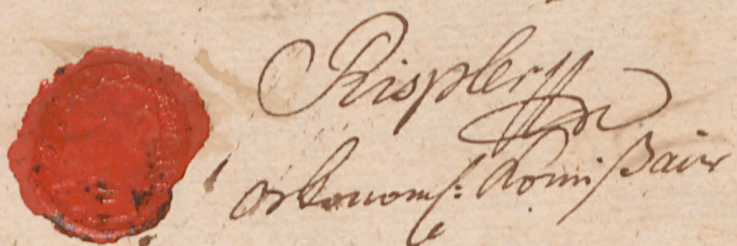 Rispler
Oekonom: Komißair